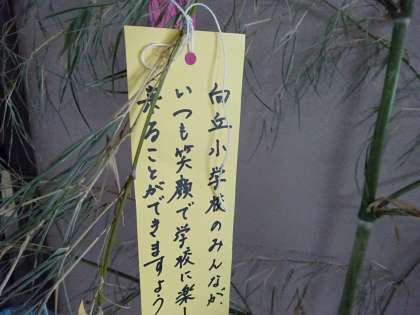 向丘小学校のみんなが、
いつも笑顔で学校に楽し
来ることができますよう